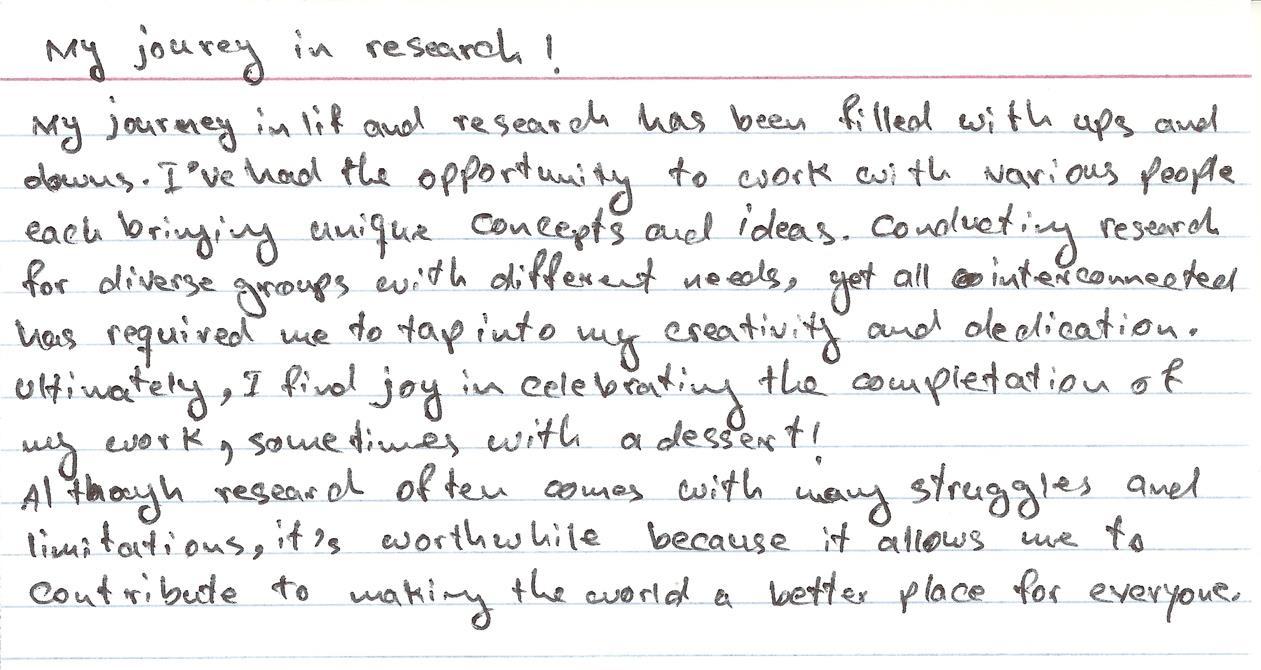 My jourey in research!
My journey in lif and research has been filled with ups and
downs. I've had the opportunity to work with various people
each bringing unique concepts and ideas. Conducting research
for diverse groups with different needs, yet all interconnected
has required me to tap into my creativity and dedication.
Ultimately, I find joy in celebrating the completation of
my work, sometimes with a dessert!
Although research often comes with many struggles and
limitations, it's worthwhile because it allows me to
contribute to making the world a better place for everyone.